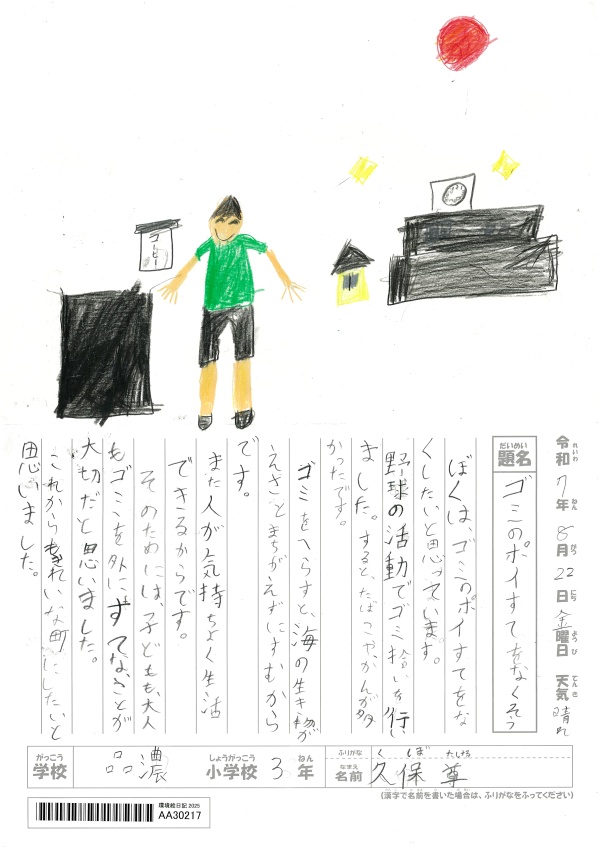 コーヒー
令和7年8月22日金曜日 天気晴れ
れいわ ねん がつ にち ようび てんき
だいめい
題名 ゴミのポイすてをなくそう
ぼくは、ゴミのポイすてをな
くしたいと思っています。
野球の活動でゴミ拾いを行い
ました。すると、たばこやかんが多
かったです。
ゴミをへらすと、海の生き物が
えさとまちがえずにすむから
です。
また人が気持ちよく生活
できるからです。
そのためには、子どもも、大人
もゴミを外にすてなことが
大切だと思いました。
これからもきれいな町にしたいと
思いました。
がっこう 学校 品濃 しょうがっこう 小学校 3 ねん 年
ふりがな くぼ たける
なまえ 名前 久保 尊
(漢字で名前を書いた場合は、ふりがなをふってください)
環境絵日記2025
AA30217